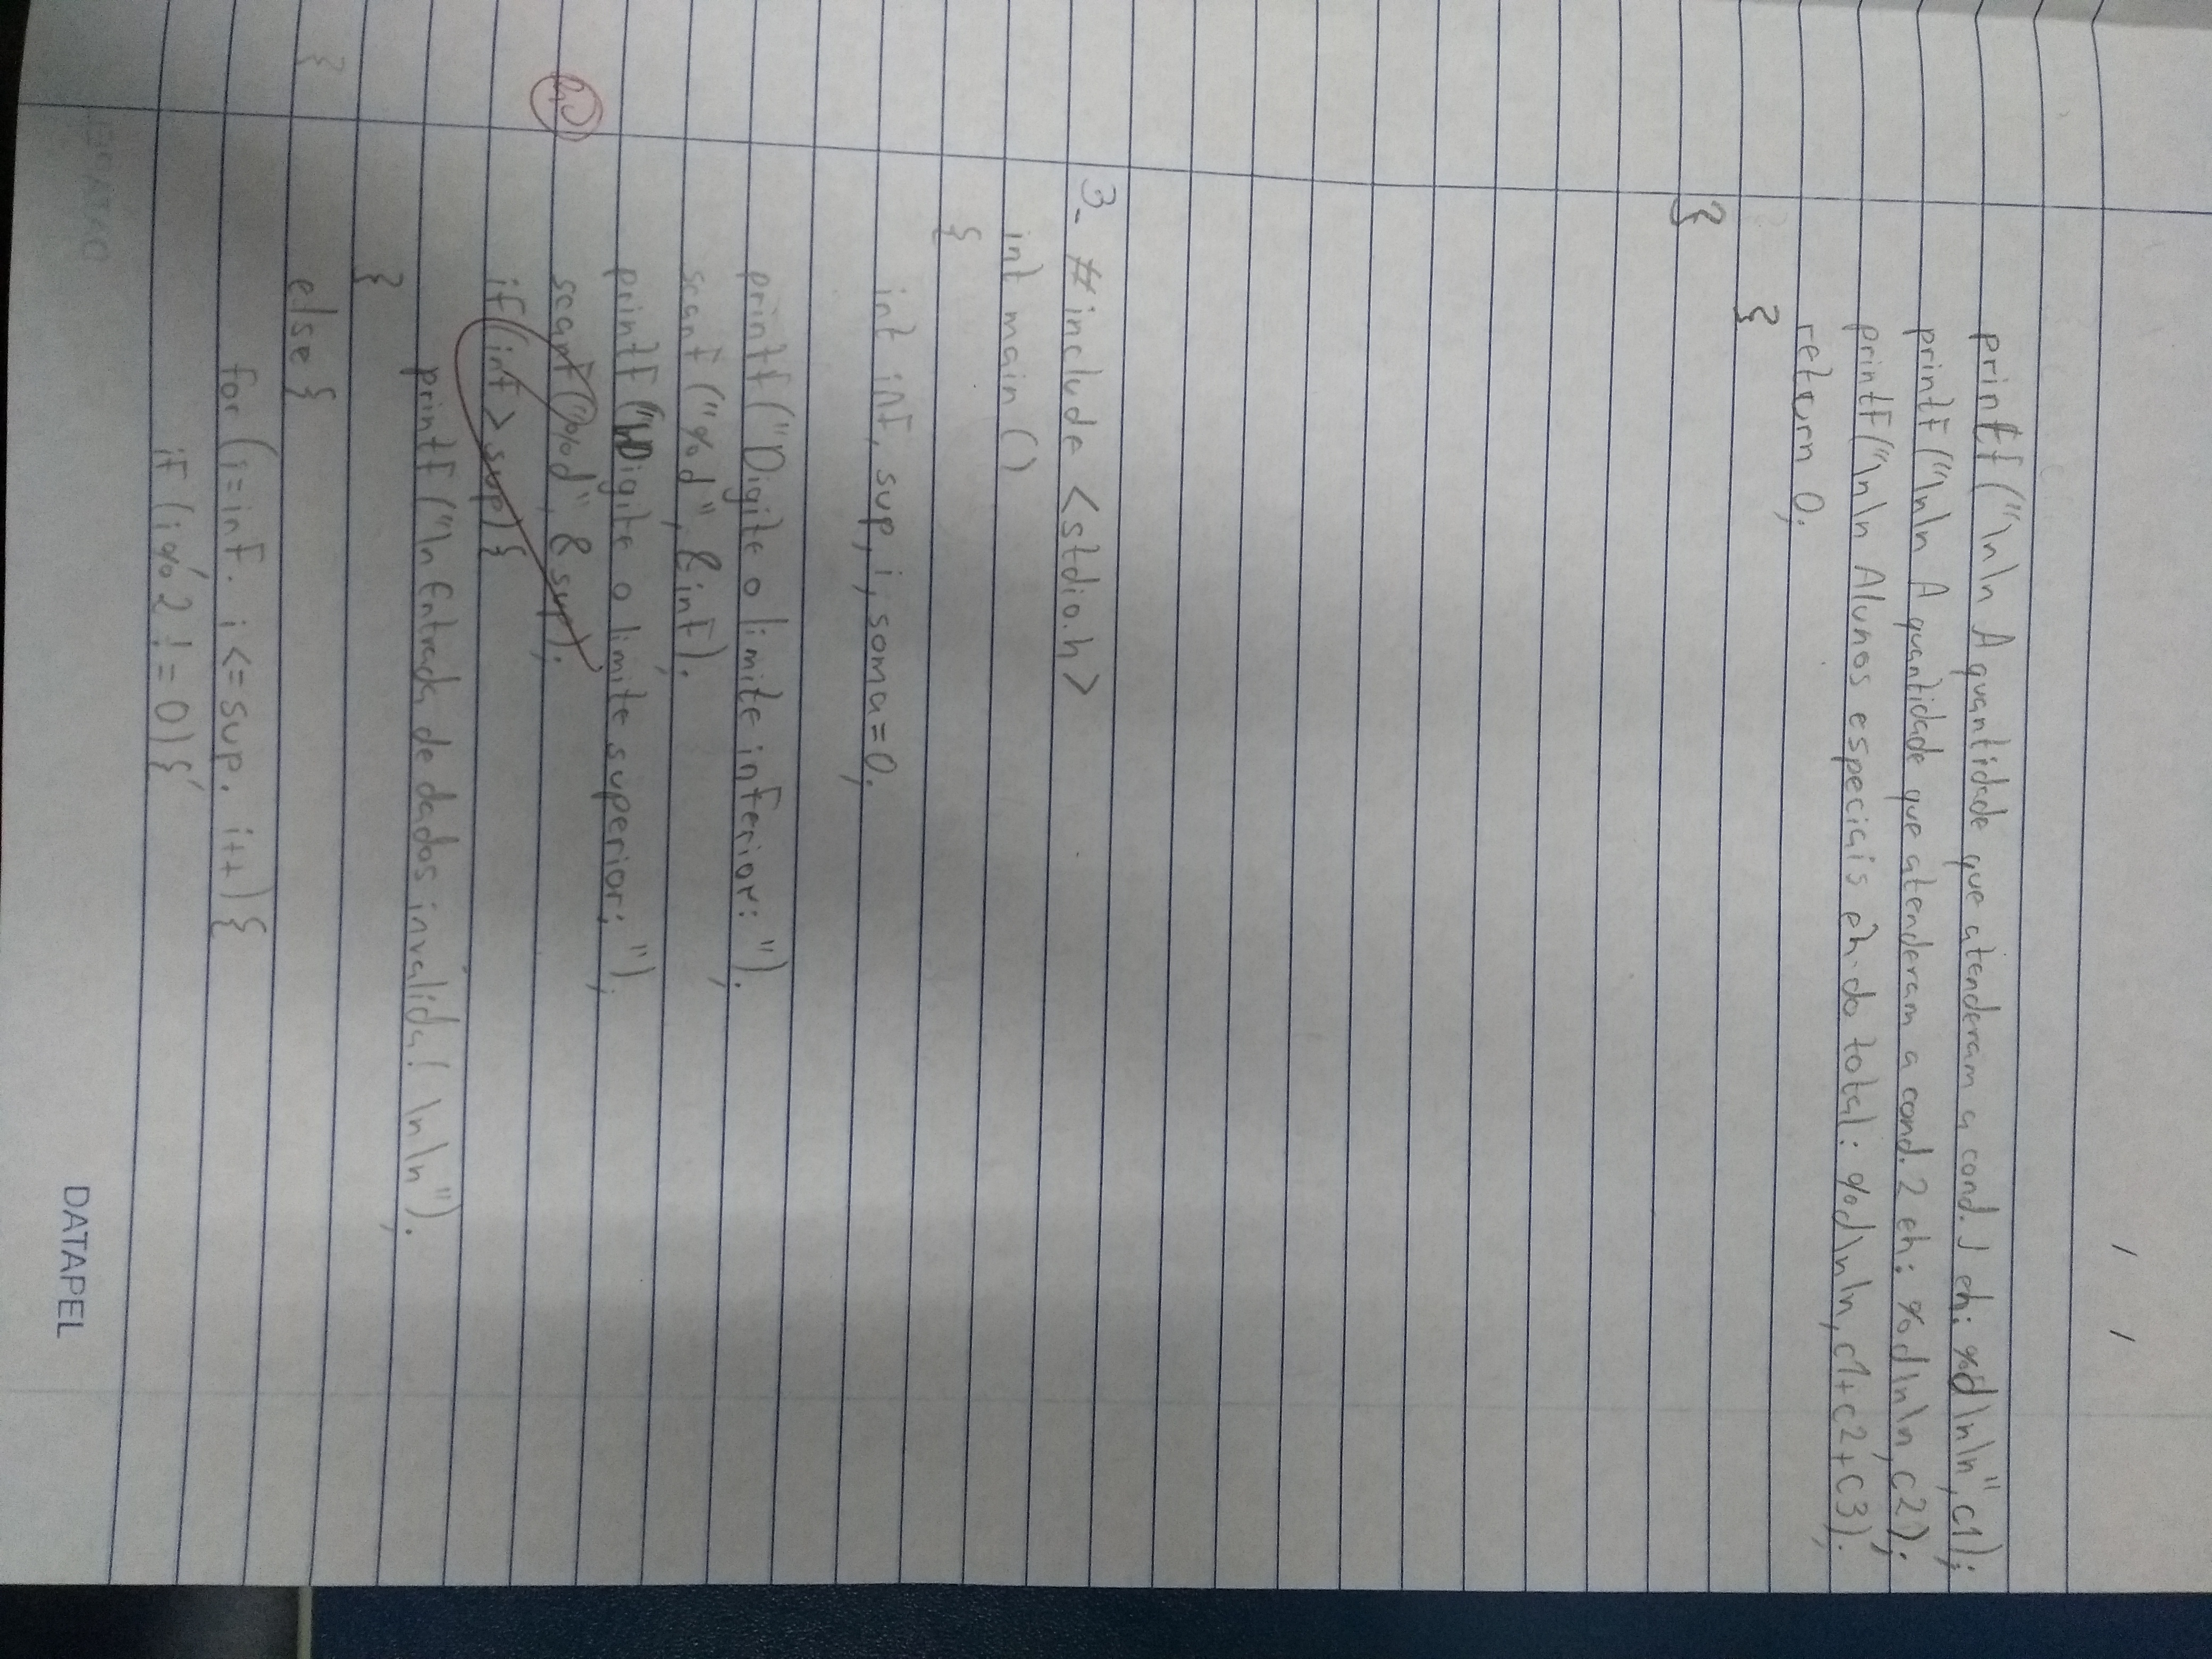 / /
printf("\n\n A quantidade que atenderam a cond. 1 eh: %d\n\n", c1);
printf("\n\n A quantidade que atenderam a cond. 2 eh: %d\n\n, c2);
printf("\n\n Alunos especiais eh do total: %d\n\n, c1+c2+c3);
return 0;
}
}
3- #include <stdio.h>
int main()
{
int inf, sup, i, soma=0;
printf("Digite o limite inferior: ");
scanf("%d", &inf);
printf("Digite o limite superior: ");
scanf("%d", &sup);
if(inf > sup){
printf("\n Entrada de dados invalida! \n\n");
}
else{
for(i=inf; i<=sup; i++){
if(i%2!=0){
}
DATAPEL